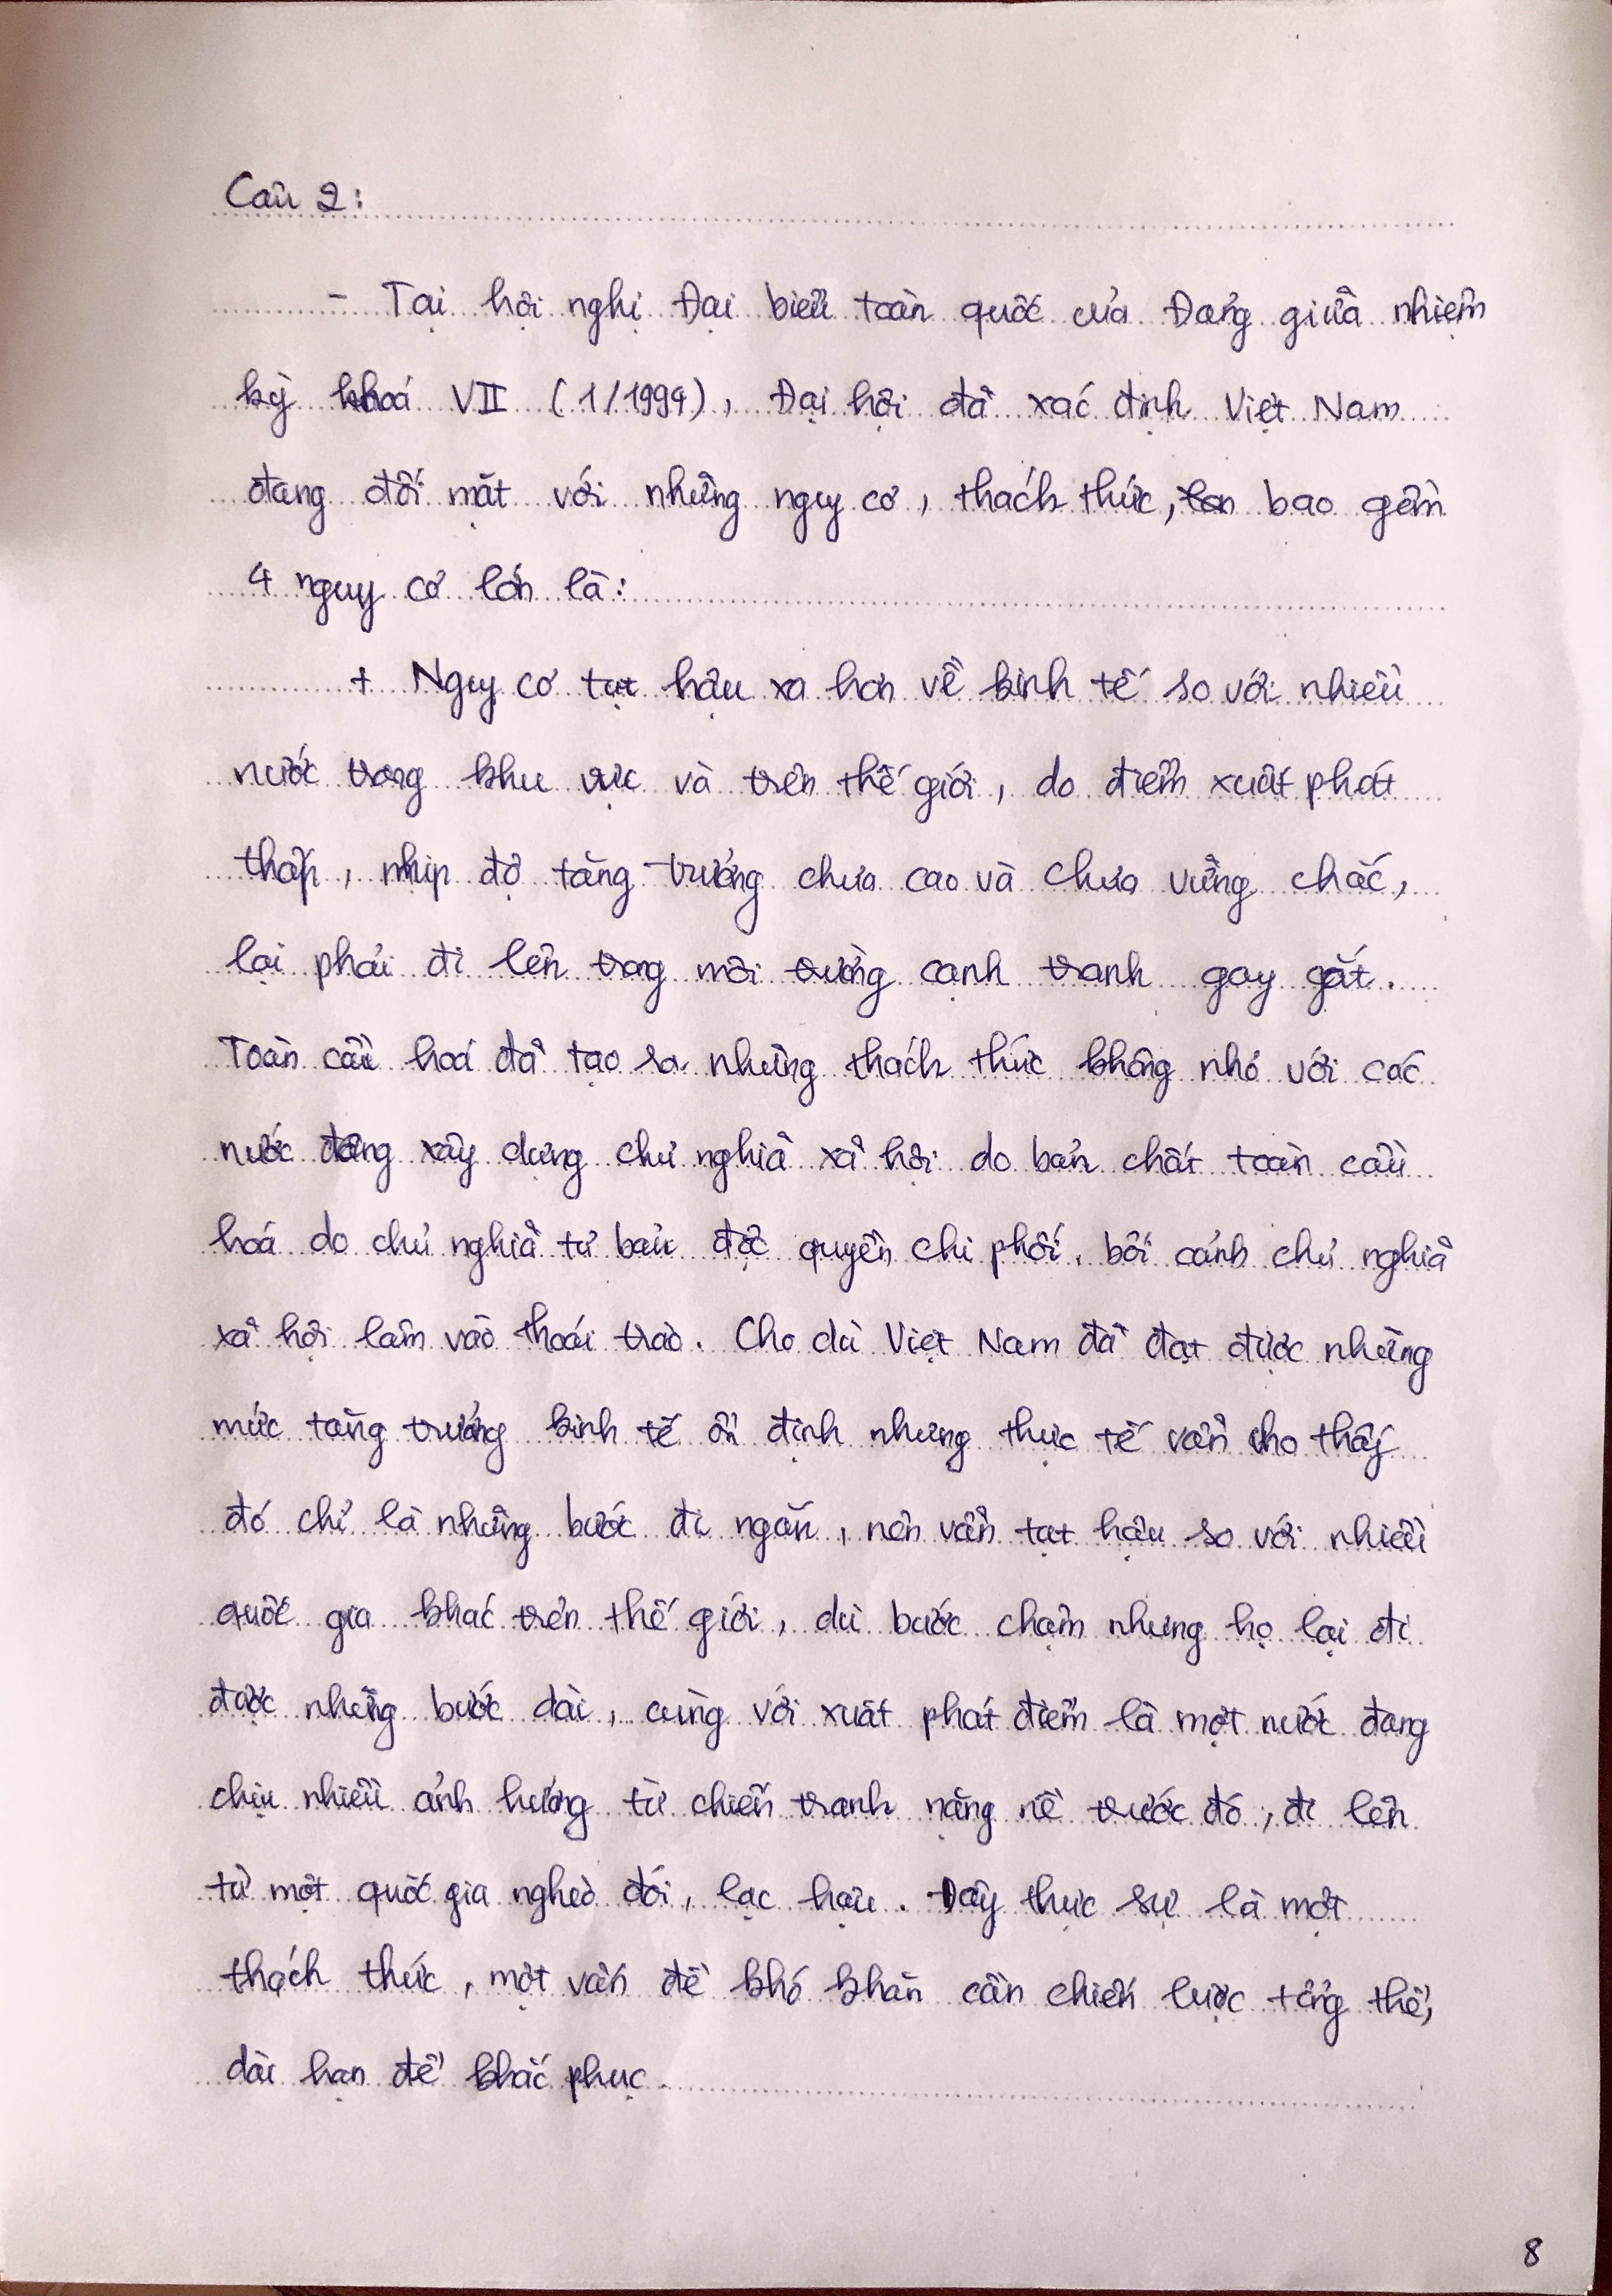 Câu 2:
- Tại hội nghị Đại biểu toàn quốc của Đảng giữa nhiệm
kỳ khoá VII (1/1994), Đại hội đã xác định Việt Nam
đang đối mặt với những nguy cơ, thách thức, bao gồm
4 nguy cơ lớn là:
+ Nguy cơ tụt hậu xa hơn về kinh tế so với nhiều
nước trong khu vực và trên thế giới, do điểm xuất phát
thấp, nhịp độ tăng trưởng chưa cao và chưa vững chắc,
lại phải đi lên trong môi trường cạnh tranh gay gắt.
Toàn cầu hoá đã tạo ra những thách thức không nhỏ với các
nước đang xây dựng chủ nghĩa xã hội do bản chất toàn cầu
hoá do chủ nghĩa tư bản độc quyền chi phối, bối cảnh chủ nghĩa
xã hội lâm vào thoái trào. Cho dù Việt Nam đã đạt được những
mức tăng trưởng kinh tế ổn định nhưng thực tế vẫn cho thấy
đó chỉ là những bước đi ngắn, nên vẫn tụt hậu so với nhiều
quốc gia khác trên thế giới, dù bước chậm nhưng họ lại đi
được những bước dài, cùng với xuất phát điểm là một nước đang
chịu nhiều ảnh hưởng từ chiến tranh nặng nề trước đó, đi lên
từ một quốc gia nghèo đói, lạc hậu. Đây thực sự là một
thách thức, một vấn đề khó khăn cần chiến lược tổng thể,
dài hạn để khắc phục.
8